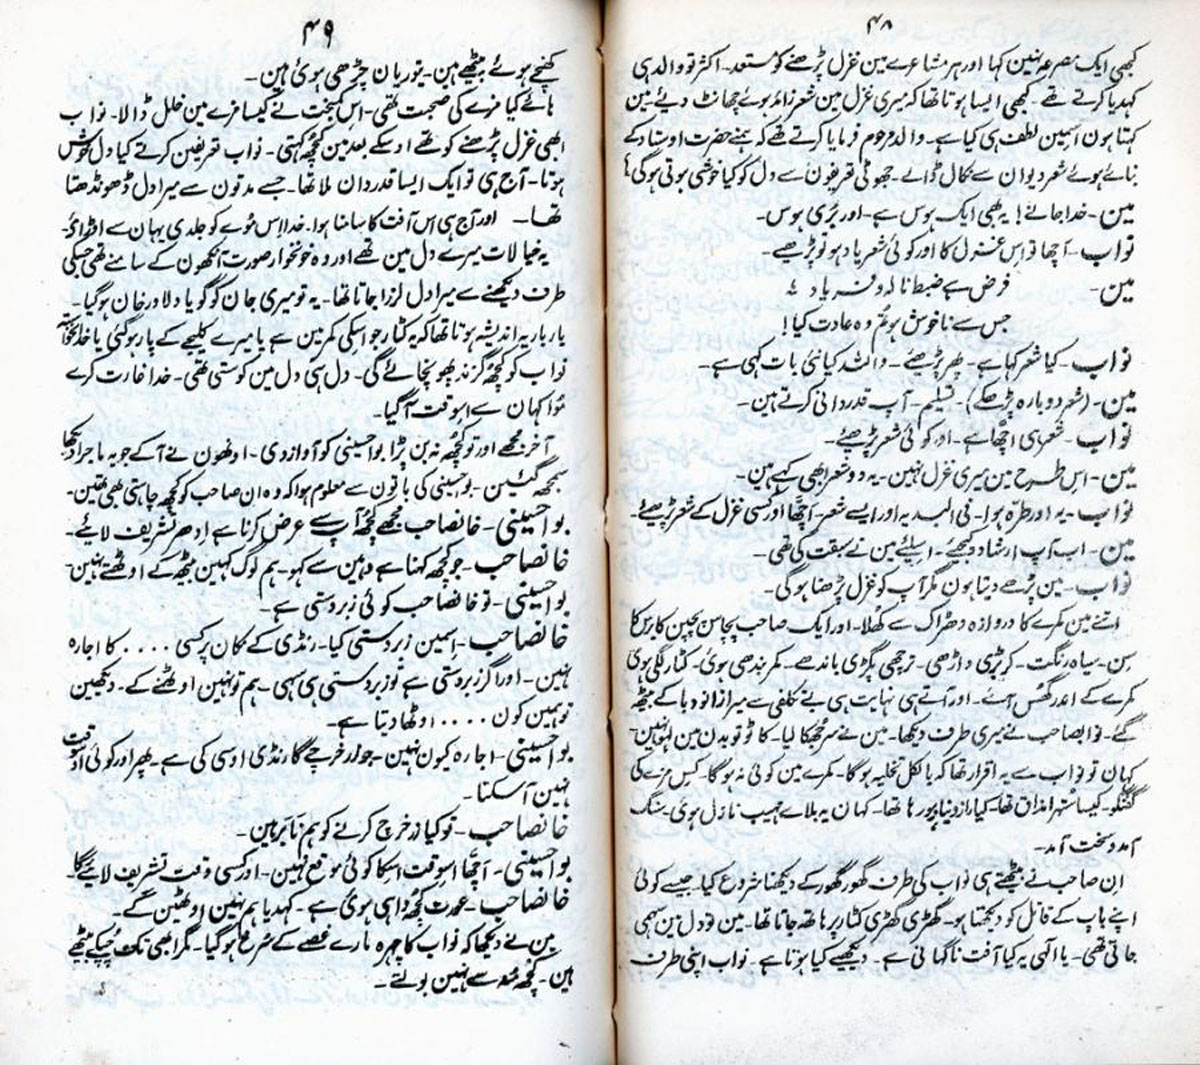 ۴۸
کبھی ایک مصرعہ نہین کہا اور ہر مشاعرے مین غزل پڑھنے کو مستعد۔ اکثر تو والد ہی
کہدیا کرتے تھے۔ کبھی ایسا ہوتا تھا کہ میری غزل مین شعر زائد ہوئے چھانٹ دیئے مین
کہتا ہون اسمین لطف ہی کیا ہے۔ والد مرحوم فرمایا کرتے تھے کہ ہمنے حضرت اوستاد کے
بنائے ہوئے شعر دیوان سے نکال ڈالے۔ جھوٹی تعریفون سے دل کو کیا خوشی ہوتی ہوگی؟
مین۔ خدا جانے! یہ بھی ایک ہوس ہے۔ اور بُری ہوس۔
نواب۔ اچھا تو اس غزل کا اور کوئی شعر یاد ہو تو پڑھیے۔
مین۔ فرض ہے ضبط نالہ و فریاد
جس سے ناخوش ہو تم وہ عادت کیا!
نواب۔ کیا شعر کہا ہے۔ پھر پڑھیئے۔ واللہ کیا نئی بات کہی ہے۔
مین۔ (شعر دوبارہ پڑھکے)۔ تسلیم۔ آپ قدردانی کرتے ہین۔
نواب۔ شعر ہی اچھا ہے۔ اور کوئی شعر پڑھیئے۔
مین۔ اس طرح مین میری غزل نہین۔ یہ دو شعر ابھی کہے ہین۔
نواب۔ یہ اور طرّہ ہوا۔ فی البدیہ اور ایسے شعر۔ اچھا اور کسی غزل کے شعر پڑھیئے۔
مین۔ اب آپ ارشاد کیجئے۔ اسیلئے مین نے سبقت کی تھی۔
نواب۔ مین پڑھے دیتا ہون مگر آپ کو غزل پڑھنا ہوگی۔
اتنے مین کمرے کا دروازہ دھڑاک سے کھلا۔ اور ایک صاحب پچاس پچپن کا برس کا
سِن۔ سیاہ رنگت۔ کڑبڑی داڑھی۔ ترچھی پگڑی باندھے۔ کمر بندھی ہوئی۔ کٹار لگی ہوئی
کمرے کے اندر گھس آئے۔ اور آتے ہی نہایت ہی بے تکلفی سے میرا زانو دبا کے بیٹھ
گئے۔ نوابصاحب نے میری طرف دیکھا۔ مین نے سر جھکا لیا۔ کاٹو تو بدن مین لہو نہین۔
کہان تو نواب سے یہ اقرار تھا کہ بالکل تخلیہ ہوگا۔ کمرے مین کوئی نہ ہوگا۔ کس مزے کی
گفتگو۔ کیسا ستھرا مذاق تھا۔ کیا راز و نیاز ہو رہا تھا۔ کہان یہ بلاے مہیب نازل ہوئی۔ سنگ
آمد و سخت آمد۔
اِن صاحب نے بیٹھتے ہی نواب کی طرف گھور گھور کے دیکھنا شروع کیا۔ جیسے کوئی
اپنے باپ کے قاتل کو دیکھتا ہو۔ گھڑی گھڑی کٹار پر ہاتھ جاتا تھا۔ مین تو دل مین سہمی
جاتی تھی۔ یا الٰہی یہ کیا آفت ناگہانی ہے۔ دیکھیے کیا ہوتا ہے۔ نواب اپنی طرف
۴۹
کھنچے ہوئے بیٹھے ہین۔ تیوریان چڑھی ہوئی ہین۔
ہائے کیا مزے کی صحبت تھی۔ اس کمبخت نے کیسا مزے مین خلل ڈالا۔ نواب
ابھی غزل پڑھنے کو تھے اوسکے بعد مین کچھ کہتی۔ نواب تعریفین کرتے کیا دل خوش
ہوتا۔ آج ہی تو ایک ایسا قدردان ملا تھا۔ جسے مدتون سے میرا دل ڈھونڈھتا
تھا۔ اور آج ہی اس آفت کا سامنا ہوا۔ خدا اِس مُوے کو جلدی یہان سے
یہ خیالات میرے دل مین تھے اور وہ خونخوار صورت آنکھون کے سامنے تھی جسکی
طرف دیکھنے سے میرا دل لرزا جاتا تھا۔ یہ تو میری جان کو گویا دلاور خان ہوگیا۔
بار بار یہ اندیشہ ہوتا تھا کہ یہ کٹار جو اسکی کمر مین ہے یا میرے کلیجے کے پار ہوگئی یا خدانخواستہ
نواب کو کچھ گزند پھونچائے گی۔ دل ہی دل مین کوستی تھی۔ خدا غارت کرے
مُوا کہان سے اسوقت آگیا۔
آخر مجھے اور تو کچھ نہ بن پڑا بوا حسینی کو آواز دی۔ اونھون نے آکے جو یہ ماجرا دیکھا
سمجھ گئین۔ بوا حسینی کی باتون سے معلوم ہوا کہ وہ ان صاحب کو کچھ جانتی بھی تھین۔
بوا حسینی۔ خانصاحب مجھے کچھ آپ سے عرض کرنا ہے اِدھر تشریف لائیے۔
خانصاحب۔ جو کچھ کہنا ہے وہین سے کہو۔ ہم لوگ کہین بیٹھ کے اوٹھتے نہین۔
بوا حسینی۔ تو خانصاحب کوئی زبردستی ہے۔
خانصاحب۔ اسمین زبردستی کیا۔ رنڈی کے مکان پر کسی .... کا اجارہ
نہین۔ اور اگر زبردستی ہے تو زبردستی ہی سہی۔ ہم تو نہین اوٹھنے کے۔ دیکھین
تو ہمین کون .... اوٹھا دیتا ہے۔
بوا حسینی۔ اجارہ کیون نہین۔ جو زر خرچے گا رنڈی اوسی کی ہے۔ پھر اور کوئی اوسوقت
نہین آسکتا۔
خانصاحب۔ تو کیا زر خرچ کرنے کو ہم نابَر ہین۔
بوا حسینی۔ اچھا اسوقت اسکا کوئی موقع نہین۔ اور کسی وقت تشریف لائیے گا
خانصاحب۔ عورت کچھ واہی ہوئی ہے۔ کہدیا ہم نہین اوٹھین گے۔
مین نے دیکھا کہ نواب کا چہرہ مارے غصے کے سُرخ ہوگیا۔ مگر ابھی تک چپکے بیٹھے
ہین۔ کچھ منہ سے نہین بولتے۔